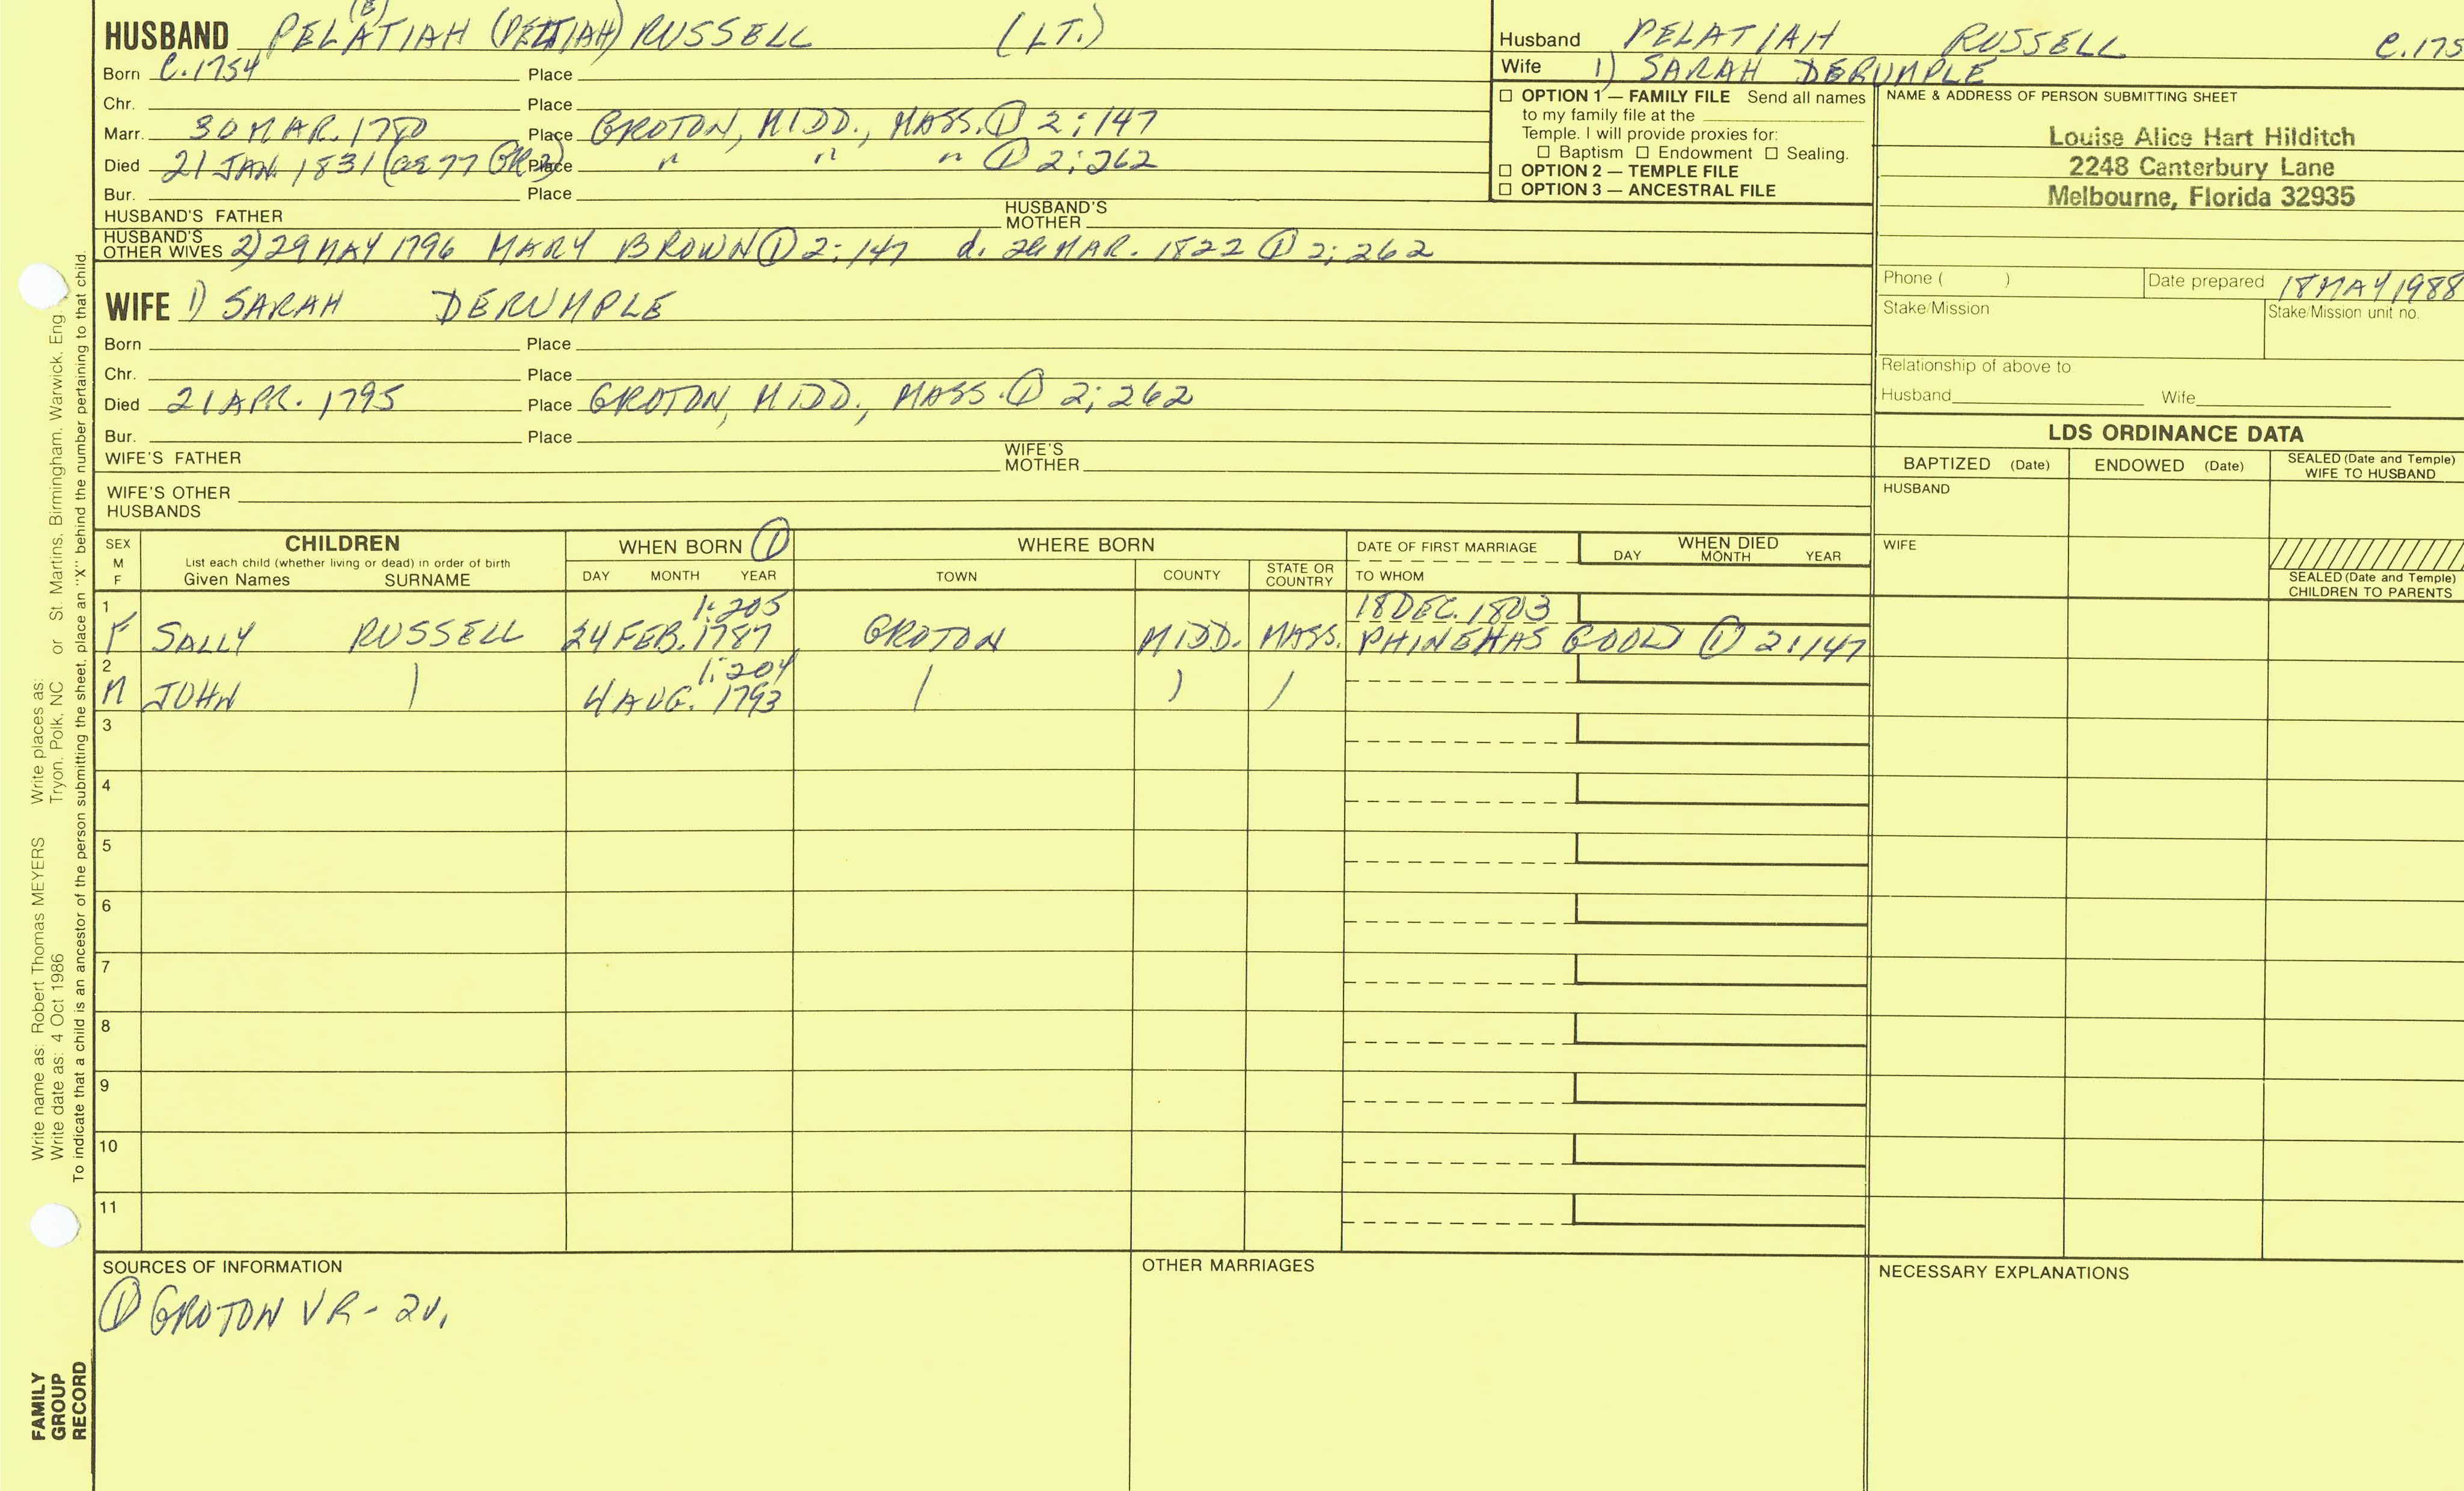 (E)
HUSBAND PELATIAH (PELTIAH) RUSSELL (LT.)
Born C.1754 Place
Chr. Place
Marr. 30 MAR. 1780 Place GROTON, MIDD., MASS. ① 2:147
Died 21 JAN. 1831 (ae 77 GR3) Place " " " ① 2:262
Bur. Place
HUSBAND'S FATHER HUSBAND'S MOTHER
HUSBAND'S OTHER WIVES 2) 29 MAY 1796 MARY BROWN ① 2:147 d. MAR. 1822 ① 2:262
WIFE 1) SARAH DERUMPLE
Born Place
Chr. Place
Died 21 APR. 1795 Place GROTON, MIDD., MASS. ① 2:262
Bur. Place
WIFE'S FATHER WIFE'S MOTHER
WIFE'S OTHER HUSBANDS
Husband PELATIAH RUSSELL C.175
Wife 1) SARAH DERUMPLE
☐ OPTION 1 — FAMILY FILE Send all names
to my family file at the
Temple. I will provide proxies for:
☐ Baptism ☐ Endowment ☐ Sealing.
☐ OPTION 2 — TEMPLE FILE
☐ OPTION 3 — ANCESTRAL FILE
NAME & ADDRESS OF PERSON SUBMITTING SHEET
Louise Alice Hart Hilditch
2248 Canterbury Lane
Melbourne, Florida 32935
Phone ( ) Date prepared 18 MAY 1988
Stake/Mission Stake/Mission unit no.
Relationship of above to
Husband Wife
LDS ORDINANCE DATA
BAPTIZED (Date) ENDOWED (Date) SEALED (Date and Temple) WIFE TO HUSBAND
HUSBAND
WIFE
SEALED (Date and Temple)
CHILDREN TO PARENTS
SEX M F CHILDREN WHEN BORN ① WHERE BORN DATE OF FIRST MARRIAGE WHEN DIED
List each child (whether living or dead) in order of birth DAY MONTH YEAR
Given Names SURNAME DAY MONTH YEAR TOWN COUNTY STATE OR COUNTRY TO WHOM
1 1:205 18 DEC. 1803
F SALLY RUSSELL 24 FEB. 1787 GROTON MIDD. MASS. PHINEHAS GOOLD ① 2:147
2 1:204
M JOHN | 4 AUG. 1793 | ) /
3
4
5
6
7
8
9
10
11
SOURCES OF INFORMATION OTHER MARRIAGES NECESSARY EXPLANATIONS
① GROTON VR - 2v.
Write name as: Robert Thomas MEYERS Write places as: St. Martins, Birmingham, Warwick, Eng.
Write date as: 4 Oct 1986 Tryon, Polk, NC or
To indicate that a child is an ancestor of the person submitting the sheet, place an "X" behind the number pertaining to that child.
FAMILY
GROUP
RECORD